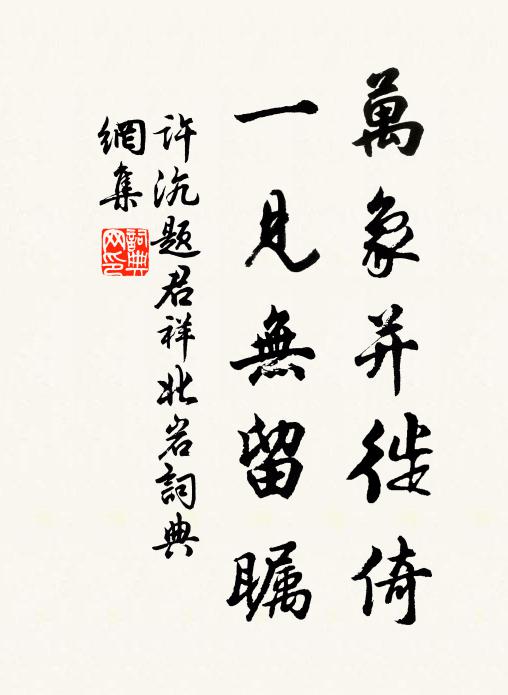 萬象并徙倚
一見無留瞩
许沆题君祥北岩詞典
網集
詞典網印